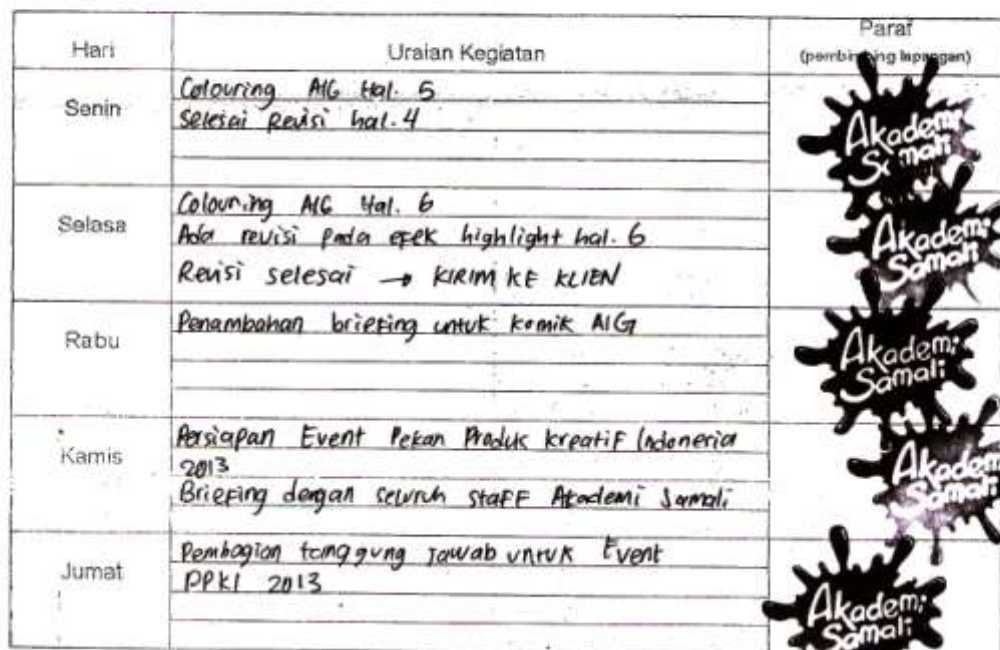 Hari
Uraian Kegiatan
Paraf
(pembimbing lapangan)
Senin
Colouring AIG Hal. 5
Selesai Revisi hal. 4
Akademi
Samali
Selasa
Colouring AIG Hal. 6
Ada revisi pada efek highlight hal. 6
Revisi selesai → KIRIM KE KLIEN
Akademi
Samali
Rabu
Penambahan briefing untuk komik AIG
Akademi
Samali
Kamis
Persiapan Event Pekan Produk Kreatif Indonesia
2013
Briefing dengan seluruh staff Akademi Samali
Akademi
Samali
Jumat
Pembagian tanggung jawab untuk Event
PPKI 2013
Akademi
Samali